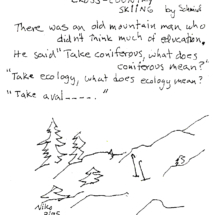 CROSS-COUNTRY
SKIING by Schmidt
There was an old mountain man who
didn't think much of education.
He said "Take coniferous, what does
coniferous mean?"
"Take ecology, what does ecology mean?
"Take aval----."